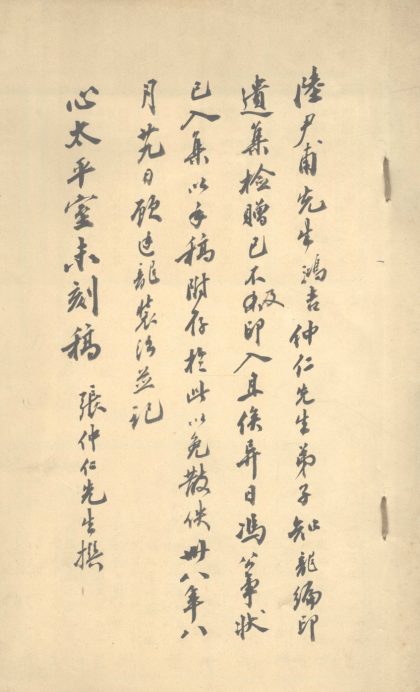 陸尹甫先生鴻吉仲仁先生弟子知龍編印
遺集檢贈已不及印入且俟异日馮公事狀
已入集以手稿附存於此以免散佚卅八年八
月廿九日顧廷龍裝治並記
心太平室未刻稿 張仲仁先生撰